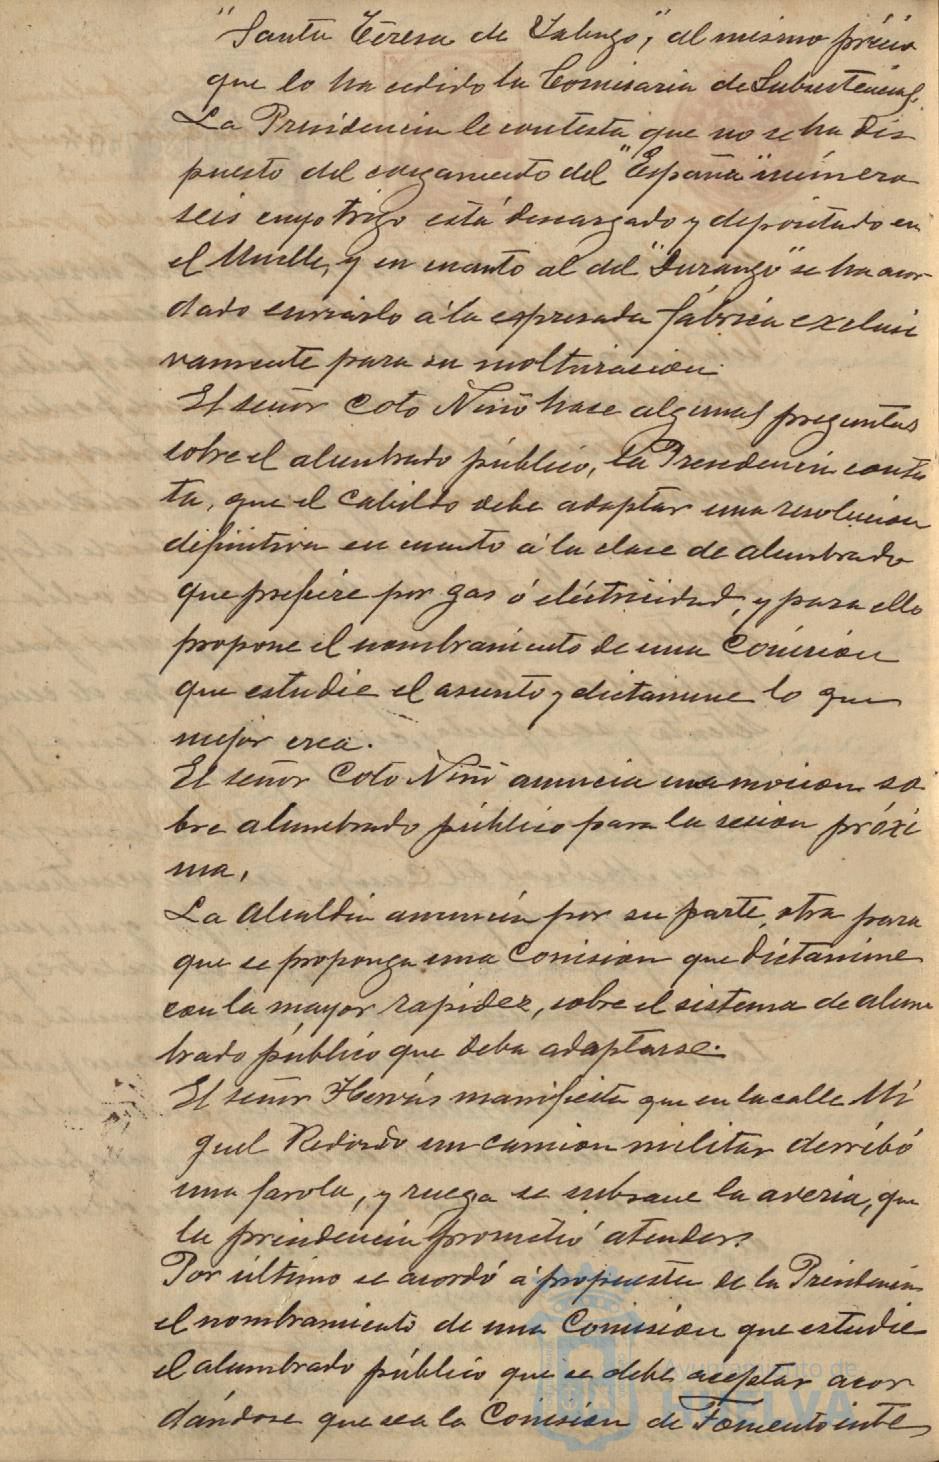 "Santa Teresa de Valenzo", al mismo précio
que lo ha cedido la Comisaria de Subsistencias.
La Presidencia le contesta que no se ha dis
puesto del cargamento del "España" número
seis cuyo trigo está descargado y depositado en
el Muelle, y en cuanto al del "Durango" se ha acor
dado enviarlo á la expresada fábrica exclusi
vamente para su molturacion.
El señor Coto Niño hace algunas preguntas
sobre el alumbrado público, la Presidencia contes
ta, que el cabildo debe adaptar una resolucion
definitiva en cuanto á la clase de alumbrado
que prefiere por gas ó eléctricidad, y para ello
propone el nombramiento de una Comision
que estudie el asunto y dictamine lo que
mejor crea.
El señor Coto Niño anuncia una mocion so
bre alumbrado público para la sesion próxi
ma.
La Alcaldia anuncia por su parte, otra para
que se proponga una Comision que dictamine
con la mayor rapidez, sobre el sistema de alum
brado público que deba adaptarse.
El señor Hervás manifiesta que en la calle Mi
guel Redondo un camion militar derribó
una farola, y ruega se subsane la averia, que
la presidencia prometió atender.
Por último se acordó á propuesta de la Presidencia
el nombramiento de una Comision que estudie
el alumbrado público que se debe aceptar acor
dándose que sea la Comision de Fomento inte
Ayuntamiento de
HUELVA